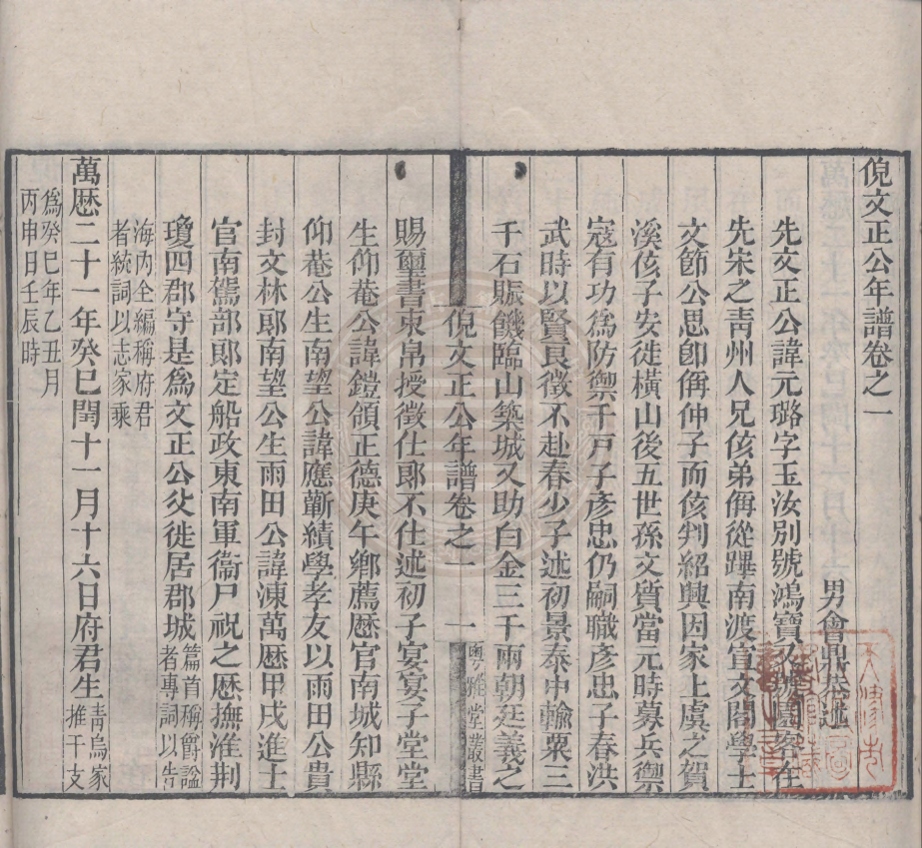 倪文正公年譜卷之一
男會鼎述
先文正公諱元璐字玉汝別號鴻寶又號園客在
先宋之青州人兄侅弟偁從蹕南渡宣文閣學士
文節公思卽偁仲子而侅判紹興因家上虞之賀
溪侅子安徙橫山後五世孫文質當元時募兵禦
寇有功爲防禦千戸子彥忠仍嗣職彥忠子春洪
武時以賢良徵不赴春少子述初景泰中輸粟三
千石賑饑臨山築城又助白金三千兩朝廷義之
倪文正公年譜卷之一 一 粤雅堂叢書
賜璽書束帛授徵仕郎不仕述初子宴宴子堂堂
生仰菴公諱鎧領正德庚午鄉薦歷官南城知縣
仰菴公生南望公諱應蘄績學孝友以雨田公貴
封文林郎南望公生雨田公諱涷萬歷甲戌進士
官南駕部郎定船政東南軍衞尸祝之歷撫淮荆
瓊四郡守是爲文正公父徙居郡城篇首稱爵謚
者專詞以告
海內全編稱府君
者統詞以志家乘
萬歷二十一年癸巳閏十一月十六日府君生靑烏家
推干支
爲癸巳年乙丑月
丙申日壬辰時